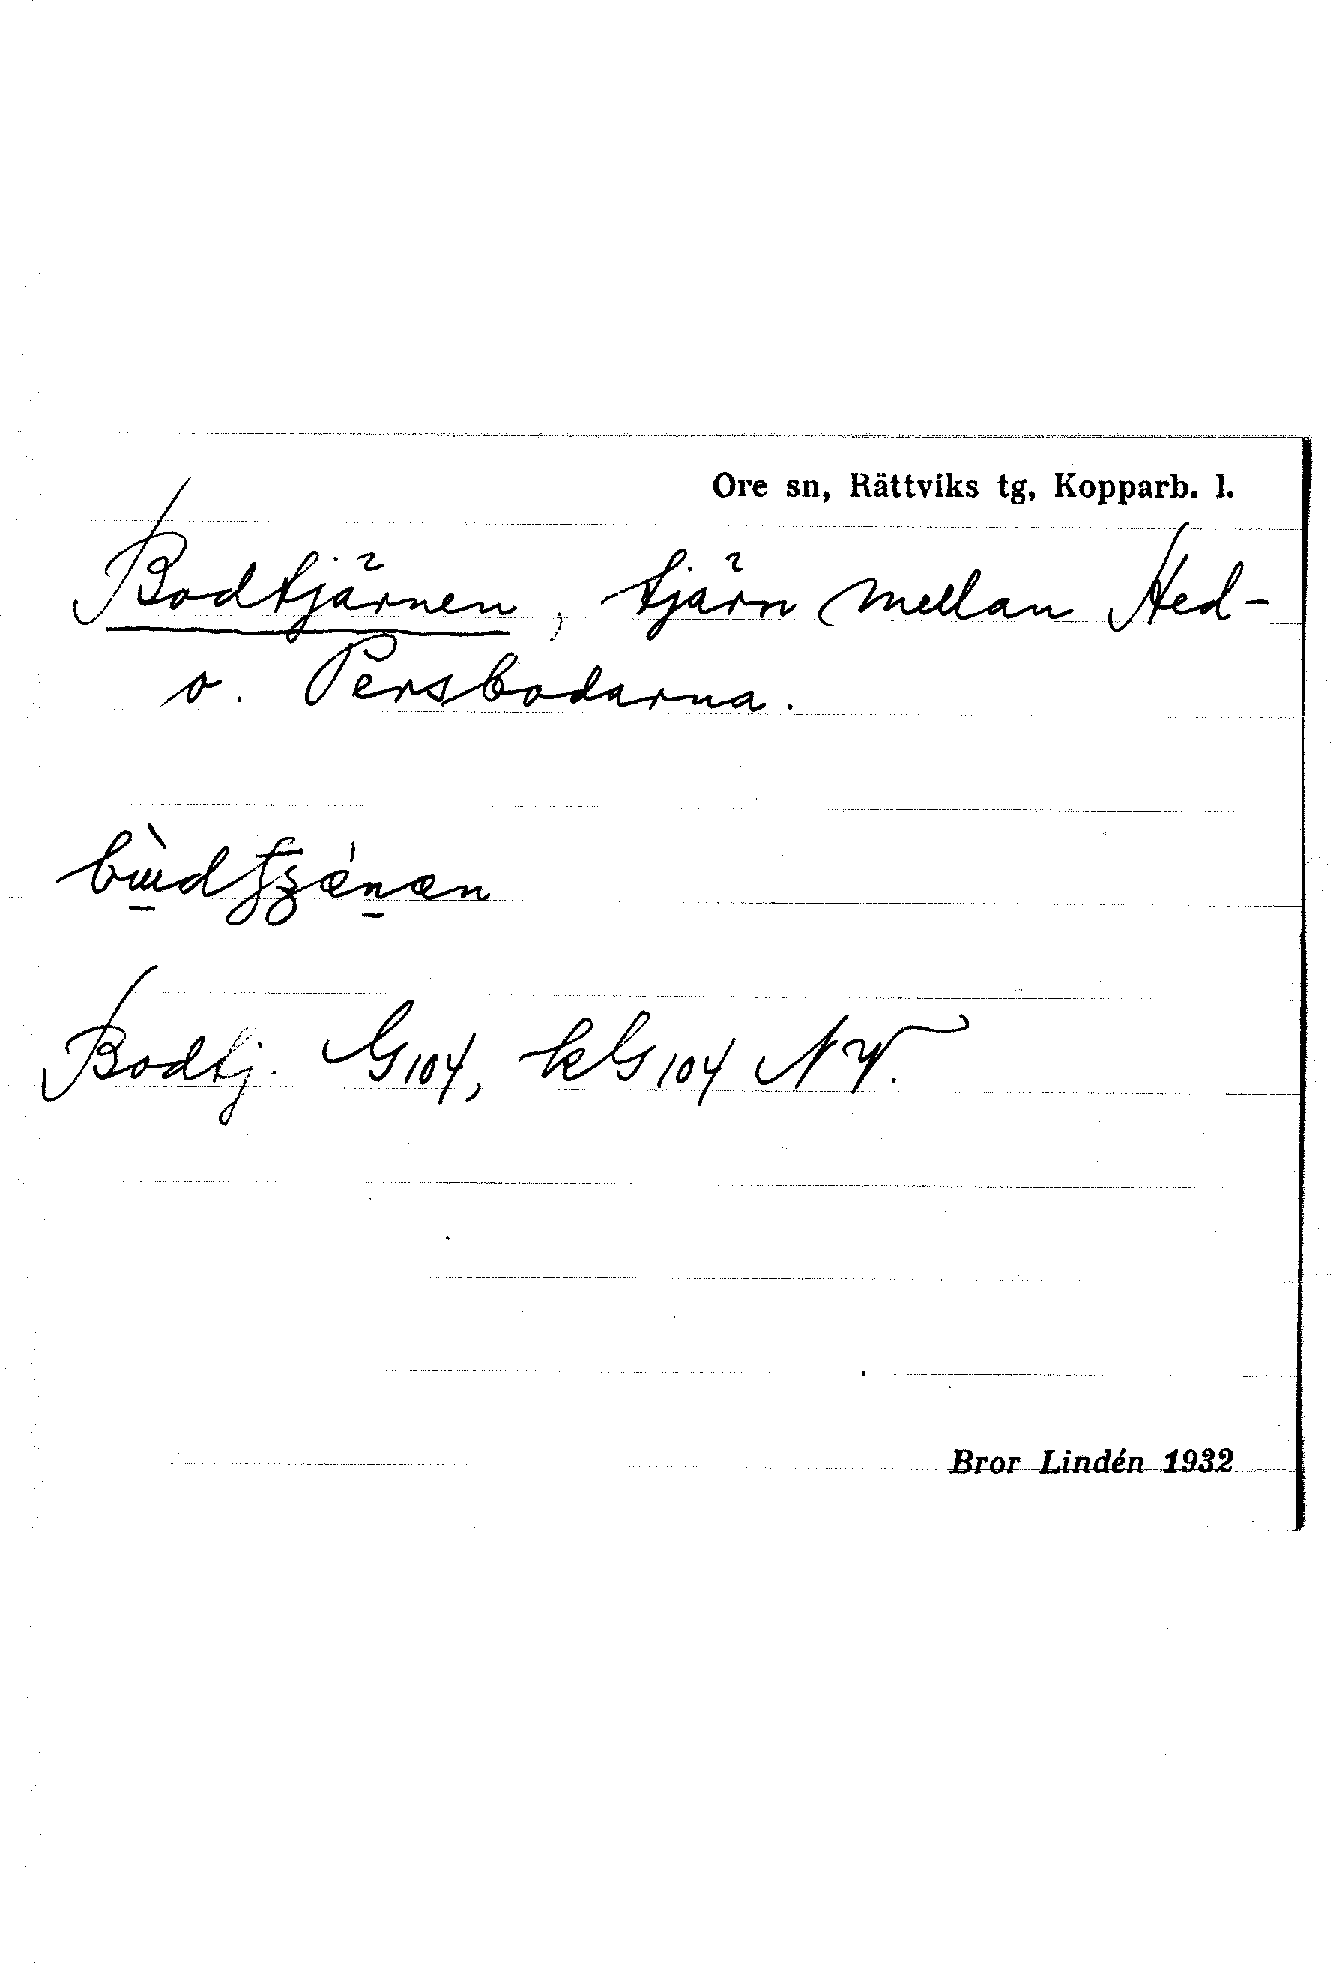 Ore sn, Rättviks tg, Kopparb. l.
Bodtjärnen, tjärn mellan Hed-
o. Persbodarna.
Bodtj. G104, kG104 NV.
Bror Lindén 1932